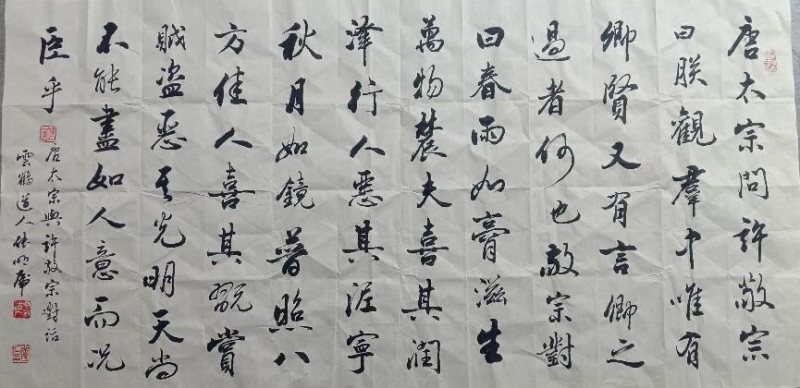 唐太宗問許敬宗
曰朕觀羣中唯有
卿賢又有言卿之
過者何也敬宗對
曰春雨如膏滋生
萬物農夫喜其潤
澤行人惡其泥寧
秋月如鏡普照八
方佳人喜其翫賞
賊盜惡其光明天尚
不能盡如人意而况
臣乎
唐太宗與許敬宗對話
雲鶴道人張